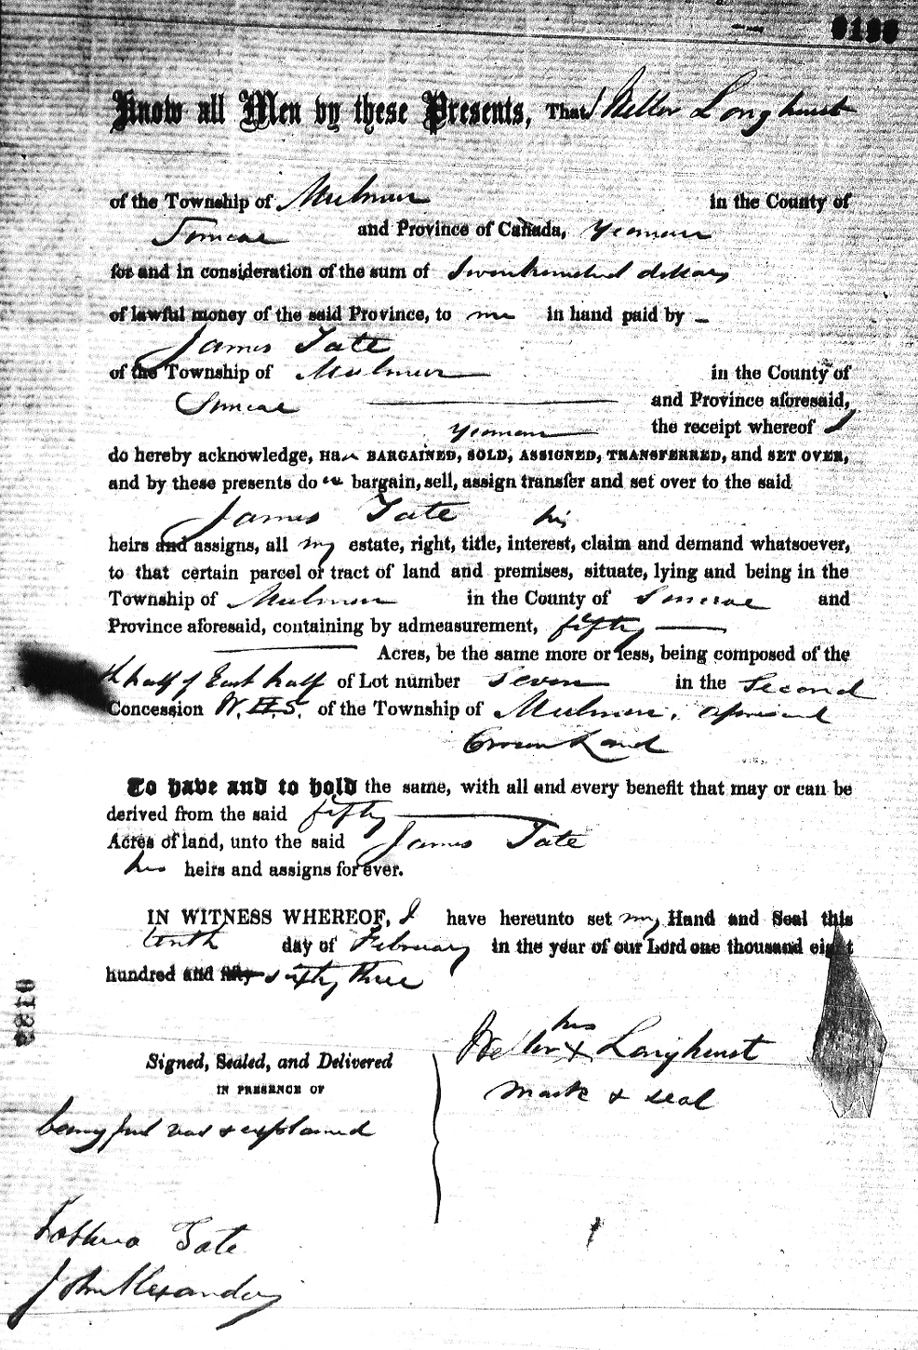 Know all Men by these Presents, That I Longhurst
of the Township of Mulmur in the County of
Simcoe and Province of Canada, Yeoman
for and in consideration of the sum of dollars
of lawful money of the said Province, to me in hand paid by
James Tate
of the Township of Mulmur in the County of
Simcoe and Province aforesaid,
yeoman the receipt whereof I
do hereby acknowledge, Have BARGAINED, SOLD, ASSIGNED, TRANSFERRED, and SET OVER,
and by these presents do bargain, sell, assign transfer and set over to the said
James Tate his
heirs and assigns, all my estate, right, title, interest, claim and demand whatsoever,
to that certain parcel or tract of land and premises, situate, lying and being in the
Township of Mulmur in the County of Simcoe and
Province aforesaid, containing by admeasurement, fifty
Acres, be the same more or less, being composed of the
half of East half of Lot number seven in the Second
Concession of the Township of Mulmur,
Crown Land
To have and to hold the same, with all and every benefit that may or can be
derived from the said fifty
Acres of land, unto the said James Tate
his heirs and assigns for ever.
IN WITNESS WHEREOF, I have hereunto set my Hand and Seal this
tenth day of February in the year of our Lord one thousand eight
hundred and fifty sixty three
his
x Longhurst
Signed, Sealed, and Delivered
mark & seal
IN PRESENCE OF
being & explained
Joshua Tate
John Alexander